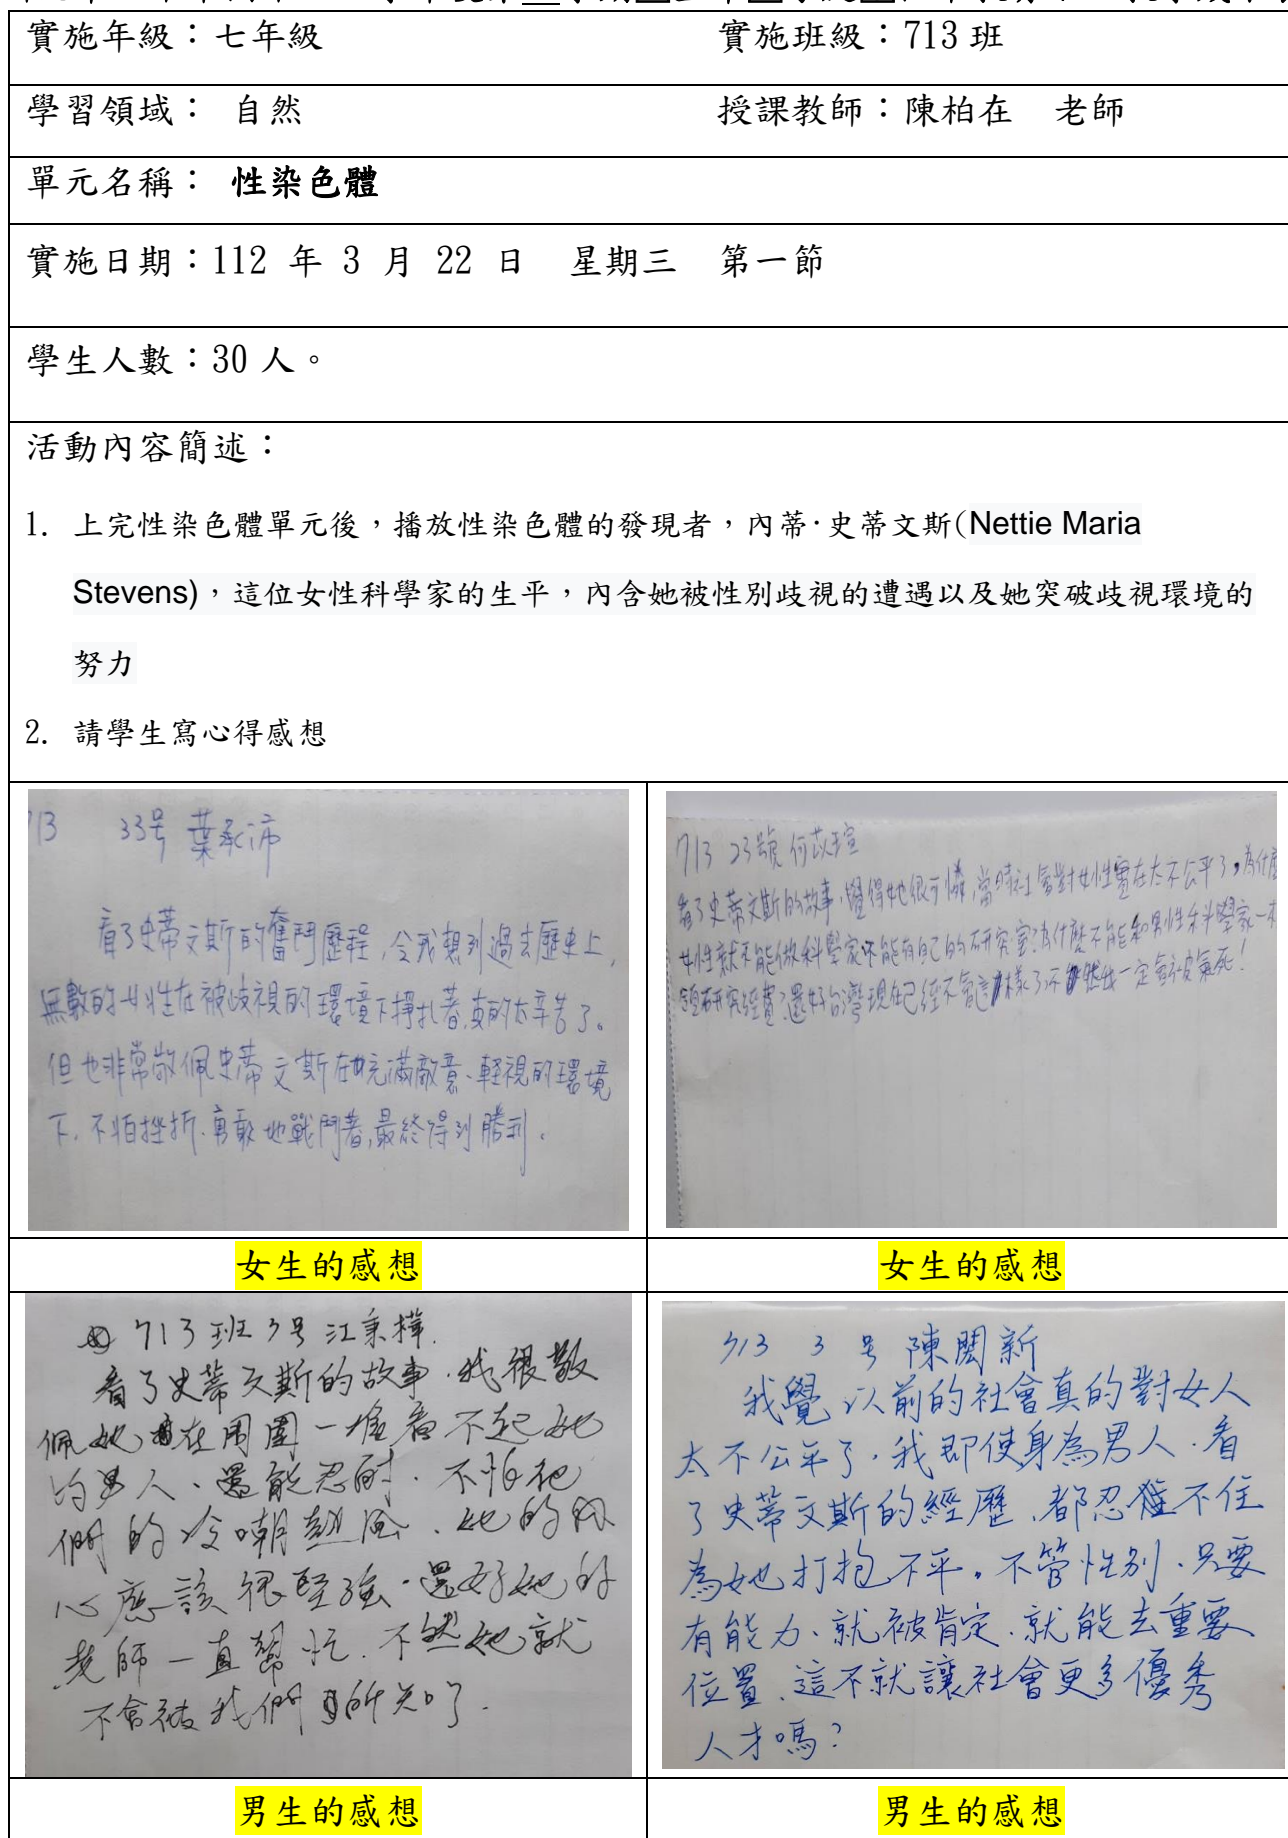 實施年級：七年級 實施班級：713 班
學習領域： 自然 授課教師：陳柏在 老師
單元名稱： 性染色體
實施日期：112 年 3 月 22 日 星期三 第一節
學生人數：30 人。
活動內容簡述：
1. 上完性染色體單元後，播放性染色體的發現者，內蒂·史蒂文斯(Nettie Maria
Stevens)，這位女性科學家的生平，內含她被性別歧視的遭遇以及她突破歧視環境的
努力
2. 請學生寫心得感想
713 33号 葉承沛
看了史蒂文斯的奮鬥歷程，令我想到過去歷史上，
無數的女性在被歧視的環境下掙扎著，真的太辛苦了。
但也非常敬佩史蒂文斯在充滿敵意、輕視的環境
下，不怕挫折，勇敢地戰鬥著，最終得到勝利。
713 23號 何苡瑄
看了史蒂文斯的故事，覺得她很可憐，當時社會對女性實在太不公平了。為什麼
女性就不能做科學家不能有自己的研究室?為什麼不能和男性科學家一樣
領研究經費?還好台灣現在已經不會這樣了，不然我一定會被氣死!
女生的感想
女生的感想
713班 7号 江秉樺
看了史蒂文斯的故事，我很敬
佩她在周圍一堆看不起她
的男人、還能忍耐，不怕他
們的冷嘲熱風，她的內
心應該很堅強，還好她的
老師一直幫忙，不然她就
不會被我們所知了.
713 3号 陳閎新
我覺以前的社會真的對女人
太不公平了，我即使身為男人，看
了史蒂文斯的經歷，都忍不住
為她打抱不平。不管性別，只要
有能力、就被肯定，就能去重要
位置、這不就讓社會更多優秀
人才嗎?
男生的感想
男生的感想